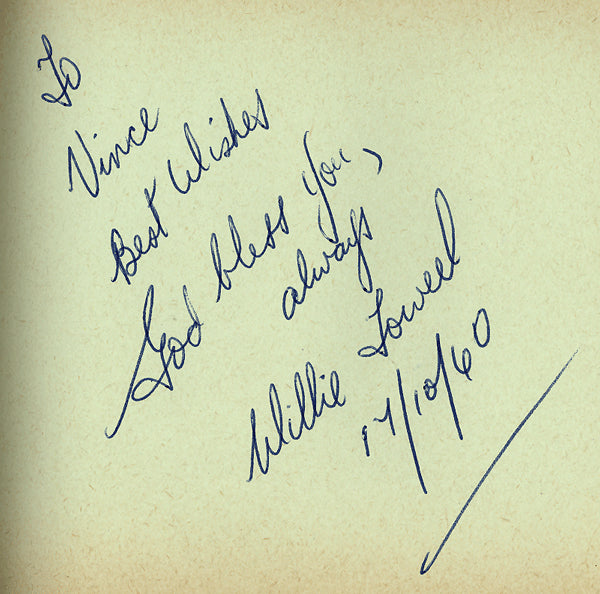 To
Vince
Best Wishes
God bless you,
always
Willie Toweel
17/10/60